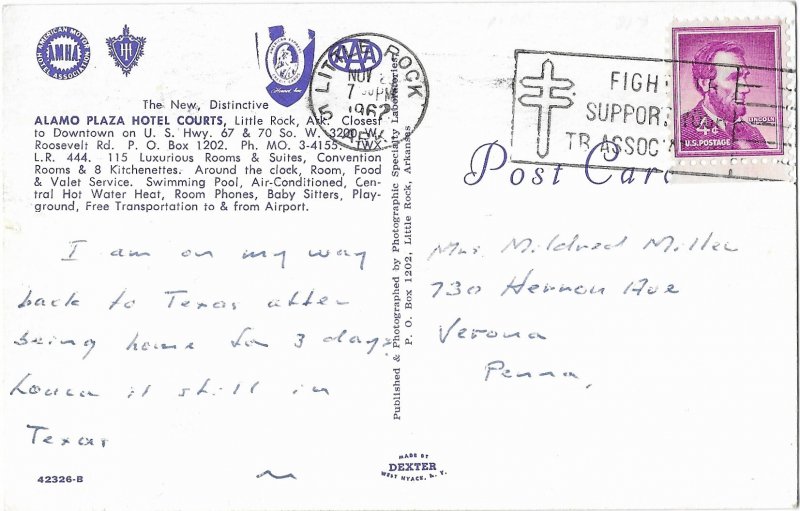 AMERICAN MOTOR HOTEL ASSOCIATION
AMHA
AAA
LITTLE ROCK
NOV
1962
ARK.
FIGH
SUPPORT
TB ASSOC
LINCOLN
4¢
U.S. POSTAGE
Post Car
The New, Distinctive
ALAMO PLAZA HOTEL COURTS, Little Rock, Ark. Closest
to Downtown on U. S. Hwy. 67 & 70 So. W. 3200 W.
Roosevelt Rd. P. O. Box 1202. Ph. MO. 3-4155. TWX
L.R. 444. 115 Luxurious Rooms & Suites, Convention
Rooms & 8 Kitchenettes. Around the clock, Room, Food
& Valet Service. Swimming Pool, Air-Conditioned, Cen-
tral Hot Water Heat, Room Phones, Baby Sitters, Play-
ground, Free Transportation to & from Airport.
I am on my way
back to Texas after
being home for 3 days
is still in
Texas
Published & Photographed by Photographic Specialty Laboratories,
P. O. Box 1202, Little Rock, Arkansas
Mrs. Mildred Miller
730 Hernon Ave
Verona
Penna,
MADE BY
DEXTER
WEST NYACK, N. Y.
42326-B